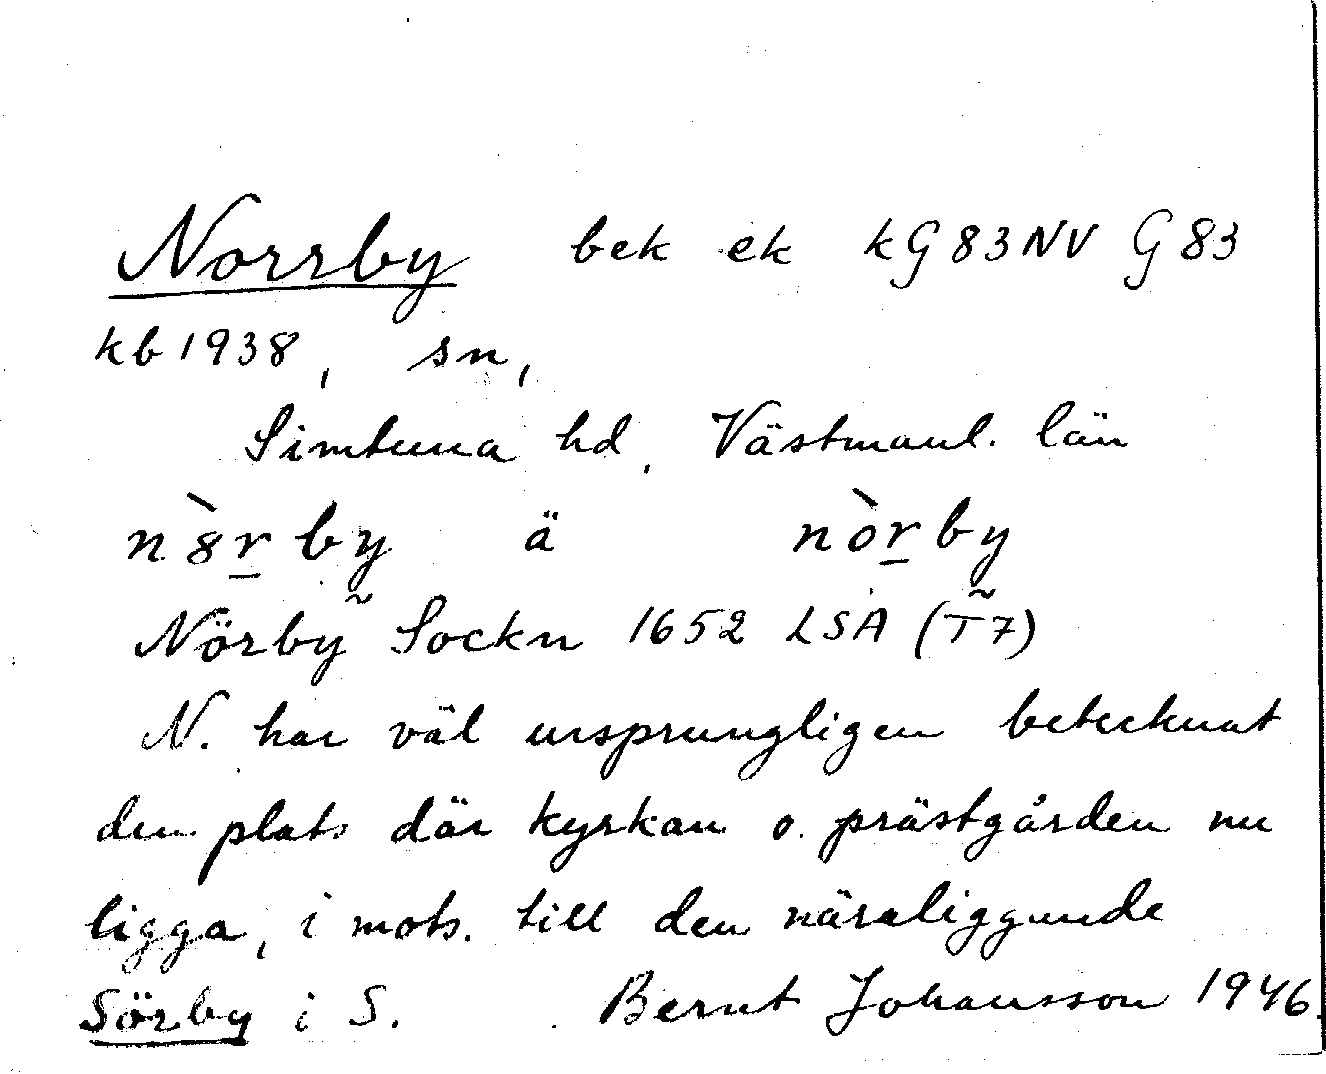 Norrby bek ek kG83NV G83
kb1938, sn,
Simtuna hd, Västmanl. län
n8̀r̲by ä nòr̲by
Nörbỹ Sockn 1652 LSA (T̃7)
N. har väl ursprungligen betecknat
den plats där kyrkan o. prästgården nu
ligga, i mots. till den näraliggande
Sörby i S. Bernt Johansson 1946.